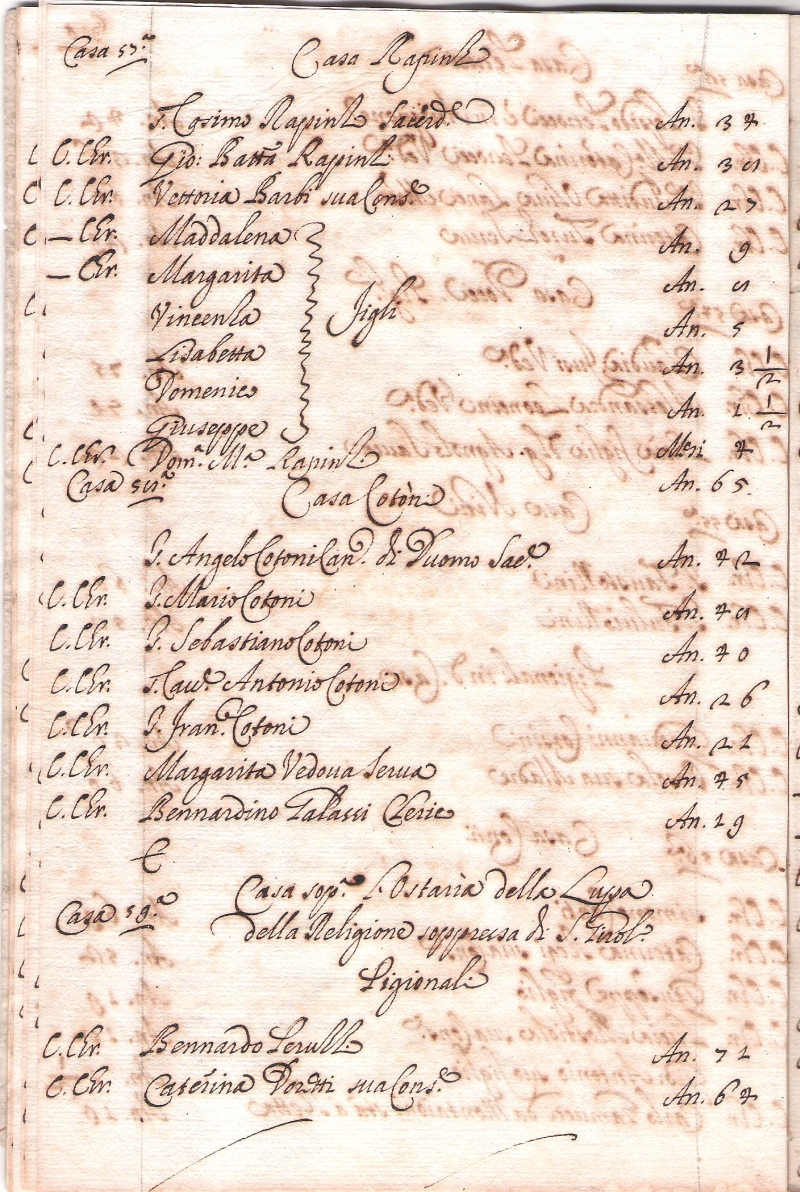 Casa 57.ª Casa Rapini
S. Cosimo Rapini Sacerd.e An. 34
C. Chr. Gio: Batta Rapini An. 38
C. Chr. Vettoria Barbi sua Cons.e An. 27
– Chr. Maddalena An. 9
– Chr. Margarita An. 8
Vincenza Figli An. 5
Lisabetta An. 3 1/2
Domenico An. 1 1/2
Giuseppe Mesi 4
C. Chr. Dom.ca M.a Rapini An. 65.
Casa 58.ª Casa Cotoni
S. Angelo Cotoni Can.co di Duomo Sac.e An. 42
C. Chr. S. Mario Cotoni An. 48
C. Chr. S. Sebastiano Cotoni An. 40
C. Chr. S. Cau.e Antonio Cotoni An. 26
C. Chr. S. Fran.co Cotoni An. 21
C. Chr. Margarita Vedova Serva An. 45
C. Chr. Bernardino Galassi Cleric An. 19
Casa 59.ª Casa sop.a l'Ostaria della Lupa
della Religione soppressa di S. Girol.o
Pigionali
C. Chr. Bernardo Perulli An. 71
C. Chr. Caterina Doretti sua Cons.e An. 64